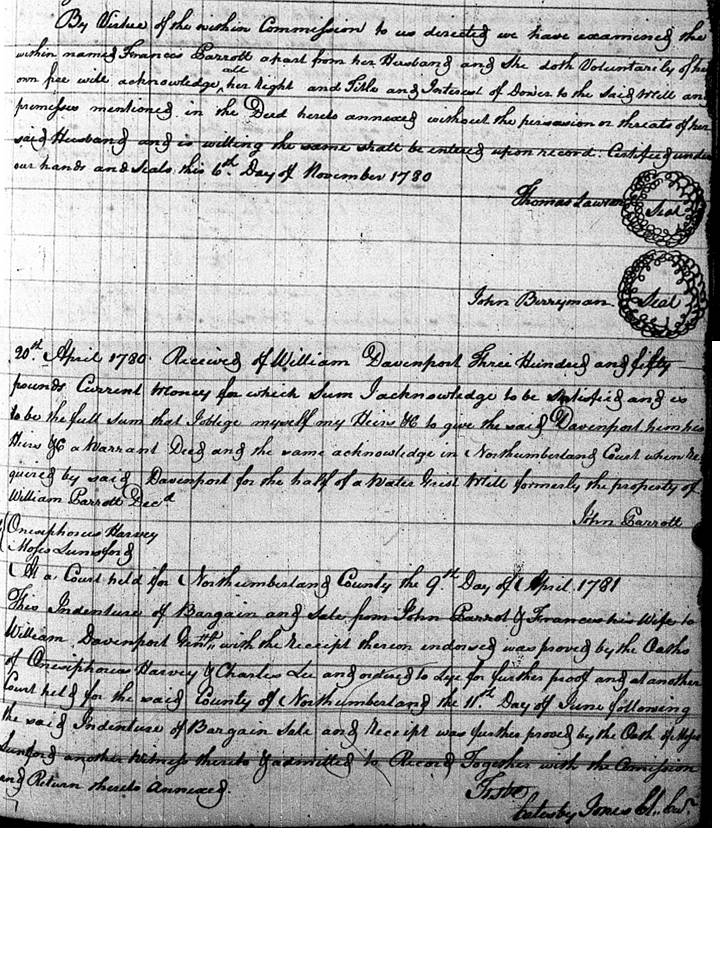 By Virtue of the within Commission to us directed we have examined the
within named Frances Parrott apart from her Husband and She doth Voluntarily of her
own free will acknowledge all her Right and Title and Interest of Dower to the Said Mill and
premisses mentioned in the Deed hereto annexed without the persuasion or threats of her
said Husband and is willing the same shall be entered upon record. Certified under
our hands and Seals this 6th. Day of November 1780
Thomas Lawson Seal
John Berryman Seal
20th. April 1780. Received of William Davenport Three Hundred and fifty
pounds Current Money for which Sum I acknowledge to be Satisfied and is
to be the full Sum that I oblege myself my Heirs &C to give the said Davenport him his
Heirs &C a Warrant Deed and the same acknowledge in Northumberland Court when Re
quired by said Davenport for the half of a Water Grist Mill formerly the property of
William Parrott Decd
John Parrott
Onesiphorus Harvey
Moses Lunsford
At a Court held for Northumberland County the 9th. Day of April 1781
This Indenture of Bargain and Sale from John Parrot & Frances his Wife to
William Davenport with the Receipt thereon endorsed was proved by the Oaths
of Onesiphorus Harvey & Charles Lee and ordered to Lye for further proof and at another
Court held for the said County of Northumberland the 11th. Day of June following
the said Indenture of Bargain Sale and Receipt was further proved by the Oath of Moses
Lunsford another Witness thereto & admitted to Record Together with the Comission
and Return thereto Annexed.
Teste
Catesby Jones Cl. Cur.